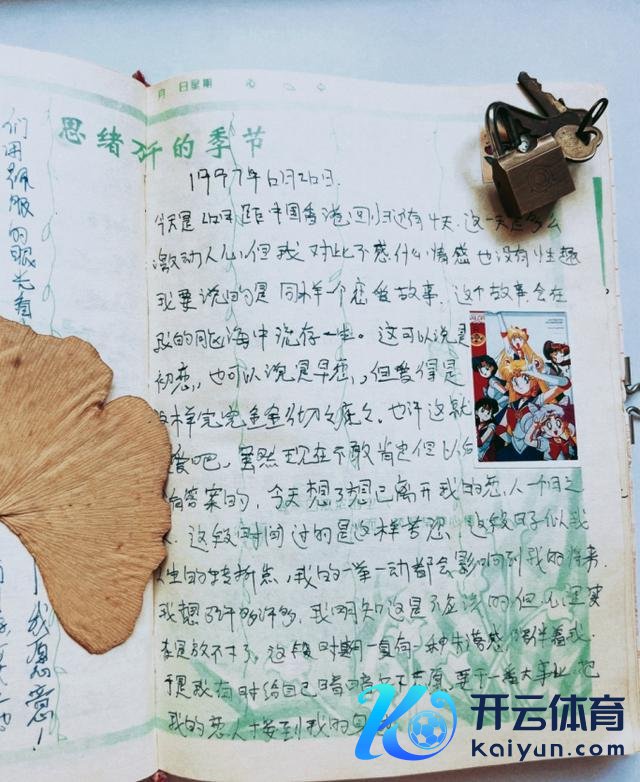 月 日 星期
思绪飞的季节
1997年6月26日.
今天是26日距中国香港回归还有4天.这一天是多么
激动人心,但我对此不感什么情感也没有性趣
我要说的是同样一个恋爱故事.这个故事会在
我的脑海中流存一生。这可以说是
初恋,也可以说是早恋,但爱得是
样完完全全彻彻底底.也许这就
爱吧,虽然现在不敢肯定但以后
有答案的,今天想了想已离开我的恋人一个月之
.这段时间过的是这样苦恋.这段日子似我
人生的转折点,我的一举一动都会影响到我的将来
我想了许多许多.我明知这是不应该的但心里实
在是放不下了.这段时期一直有一种失落感陪伴着我.
于是我有时给自己暗暗 下 愿.要干一番大事业.把
我的恋人接到我的身
们用佩服的眼光看
我愿意!
开云体育
kaiyun.com